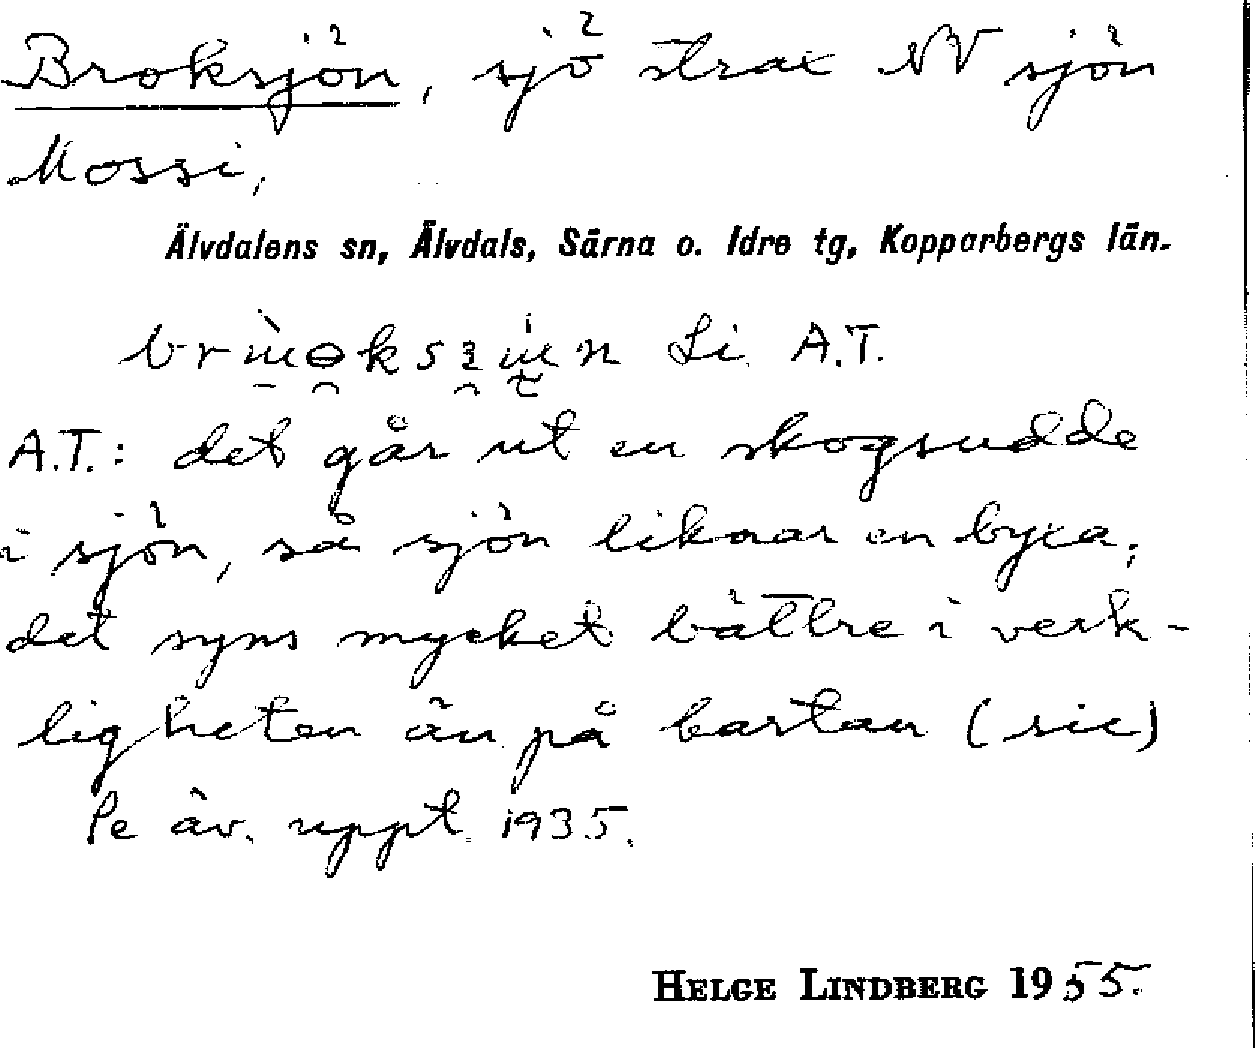 Broksjön, sjö strax NV sjön
Mossi,
Älvdalens sn, Älvdals, Särna o. Idre tg, Kopparbergs län.
Li. A.T.
A.T.: det går ut en skogsudde
i sjön, så sjön liknar en byxa;
det syns mycket bättre i verk-
ligheten än på kartan (sic)
Se äv. uppt. 1935.
HELGE LINDBERG 1955.